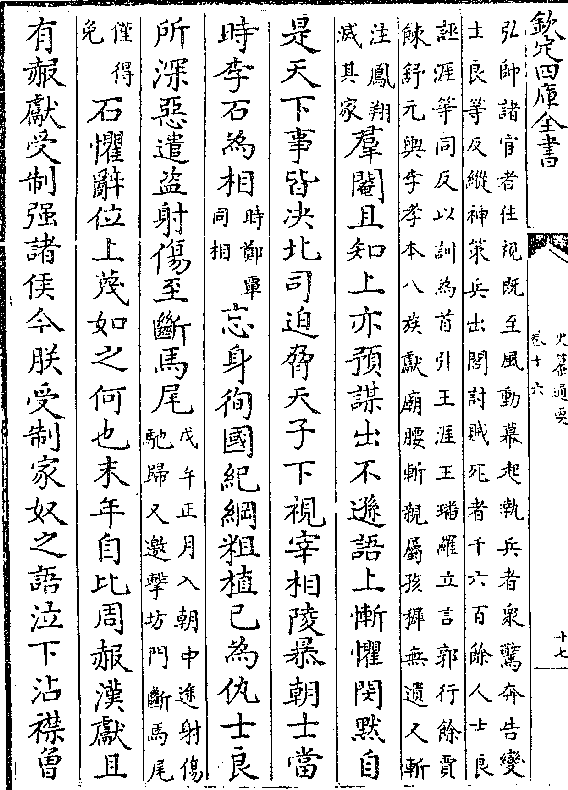 欽定四庫全書
史纂通要
卷十六
十七
弘帥諸宦者往視既至風動幕起執兵者衆驚奔告變
士良等反縱神策兵出閤討賊死者千六百餘人士良
誣涯等同反以訓為首引王涯王璠羅立言郭行餘賈
餗舒元輿李孝本八族獻廟腰斬親屬孩穉無遺又斬
注鳳翔
滅其家
羣閹且知上亦預謀出不遜語上慚懼閔默自
是天下事皆决北司迫脅天子下視宰相陵暴朝士當
時李石為相
時鄭覃
同相
忘身徇國紀綱粗植已為仇士良
所深惡遣盜射傷至斷馬尾
戊午正月入朝中途射傷
馳歸又邀擊坊門斷馬尾
僅得
免
石懼辭位上蔑如之何也末年自比周赧漢獻且
有赧獻受制强諸侯今朕受制家奴之語泣下沾襟曾